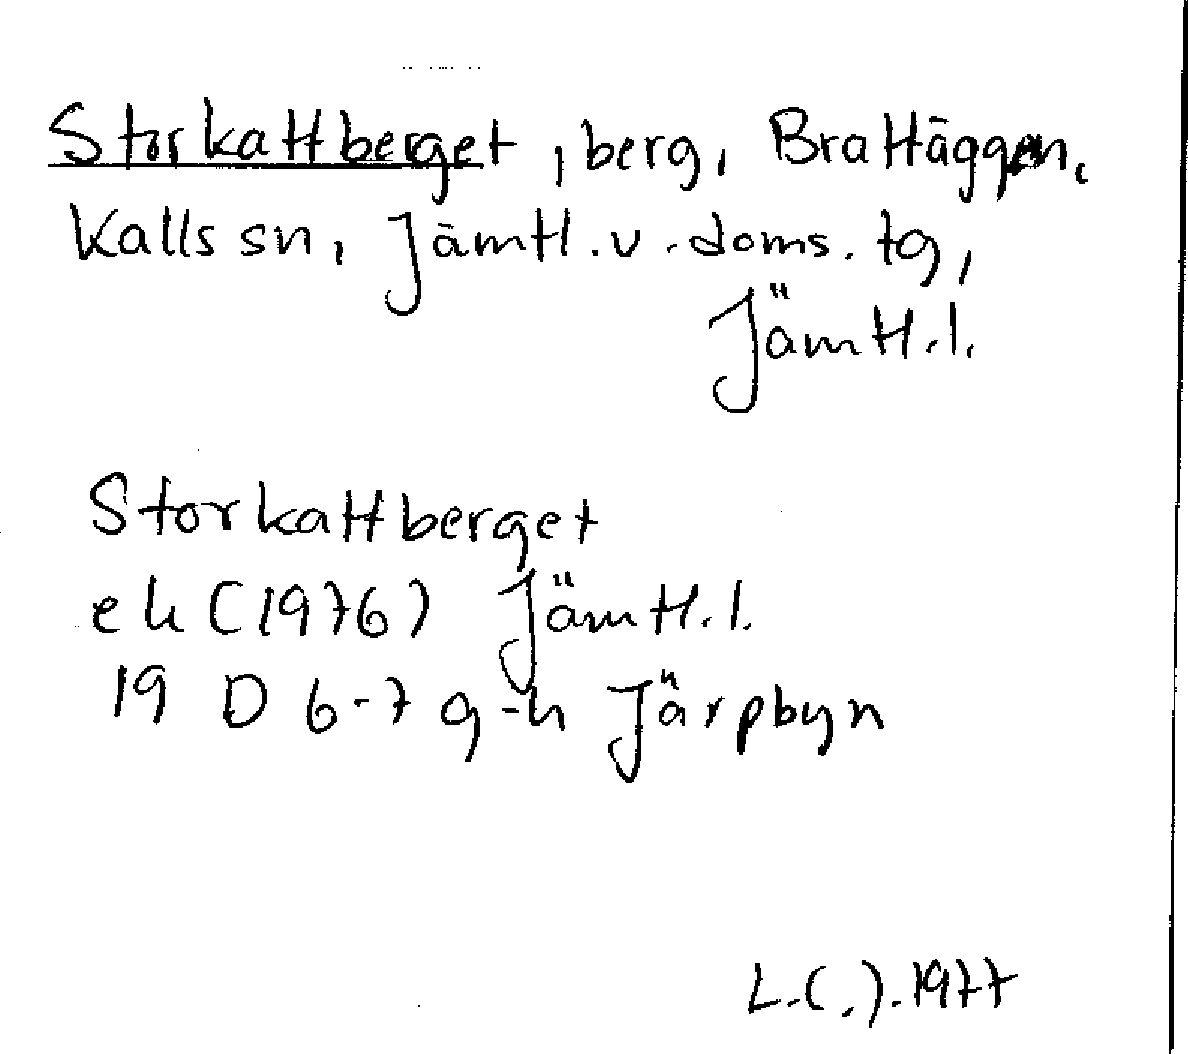 Storkattberget, berg, Brattäggen,
Kalls sn, Jämtl. v. doms. tg,
Jämtl. l.
Storkattberget
ek (1976) Jämtl. l.
19 D 6-7 g-h Järpbyn
L.(.).1977